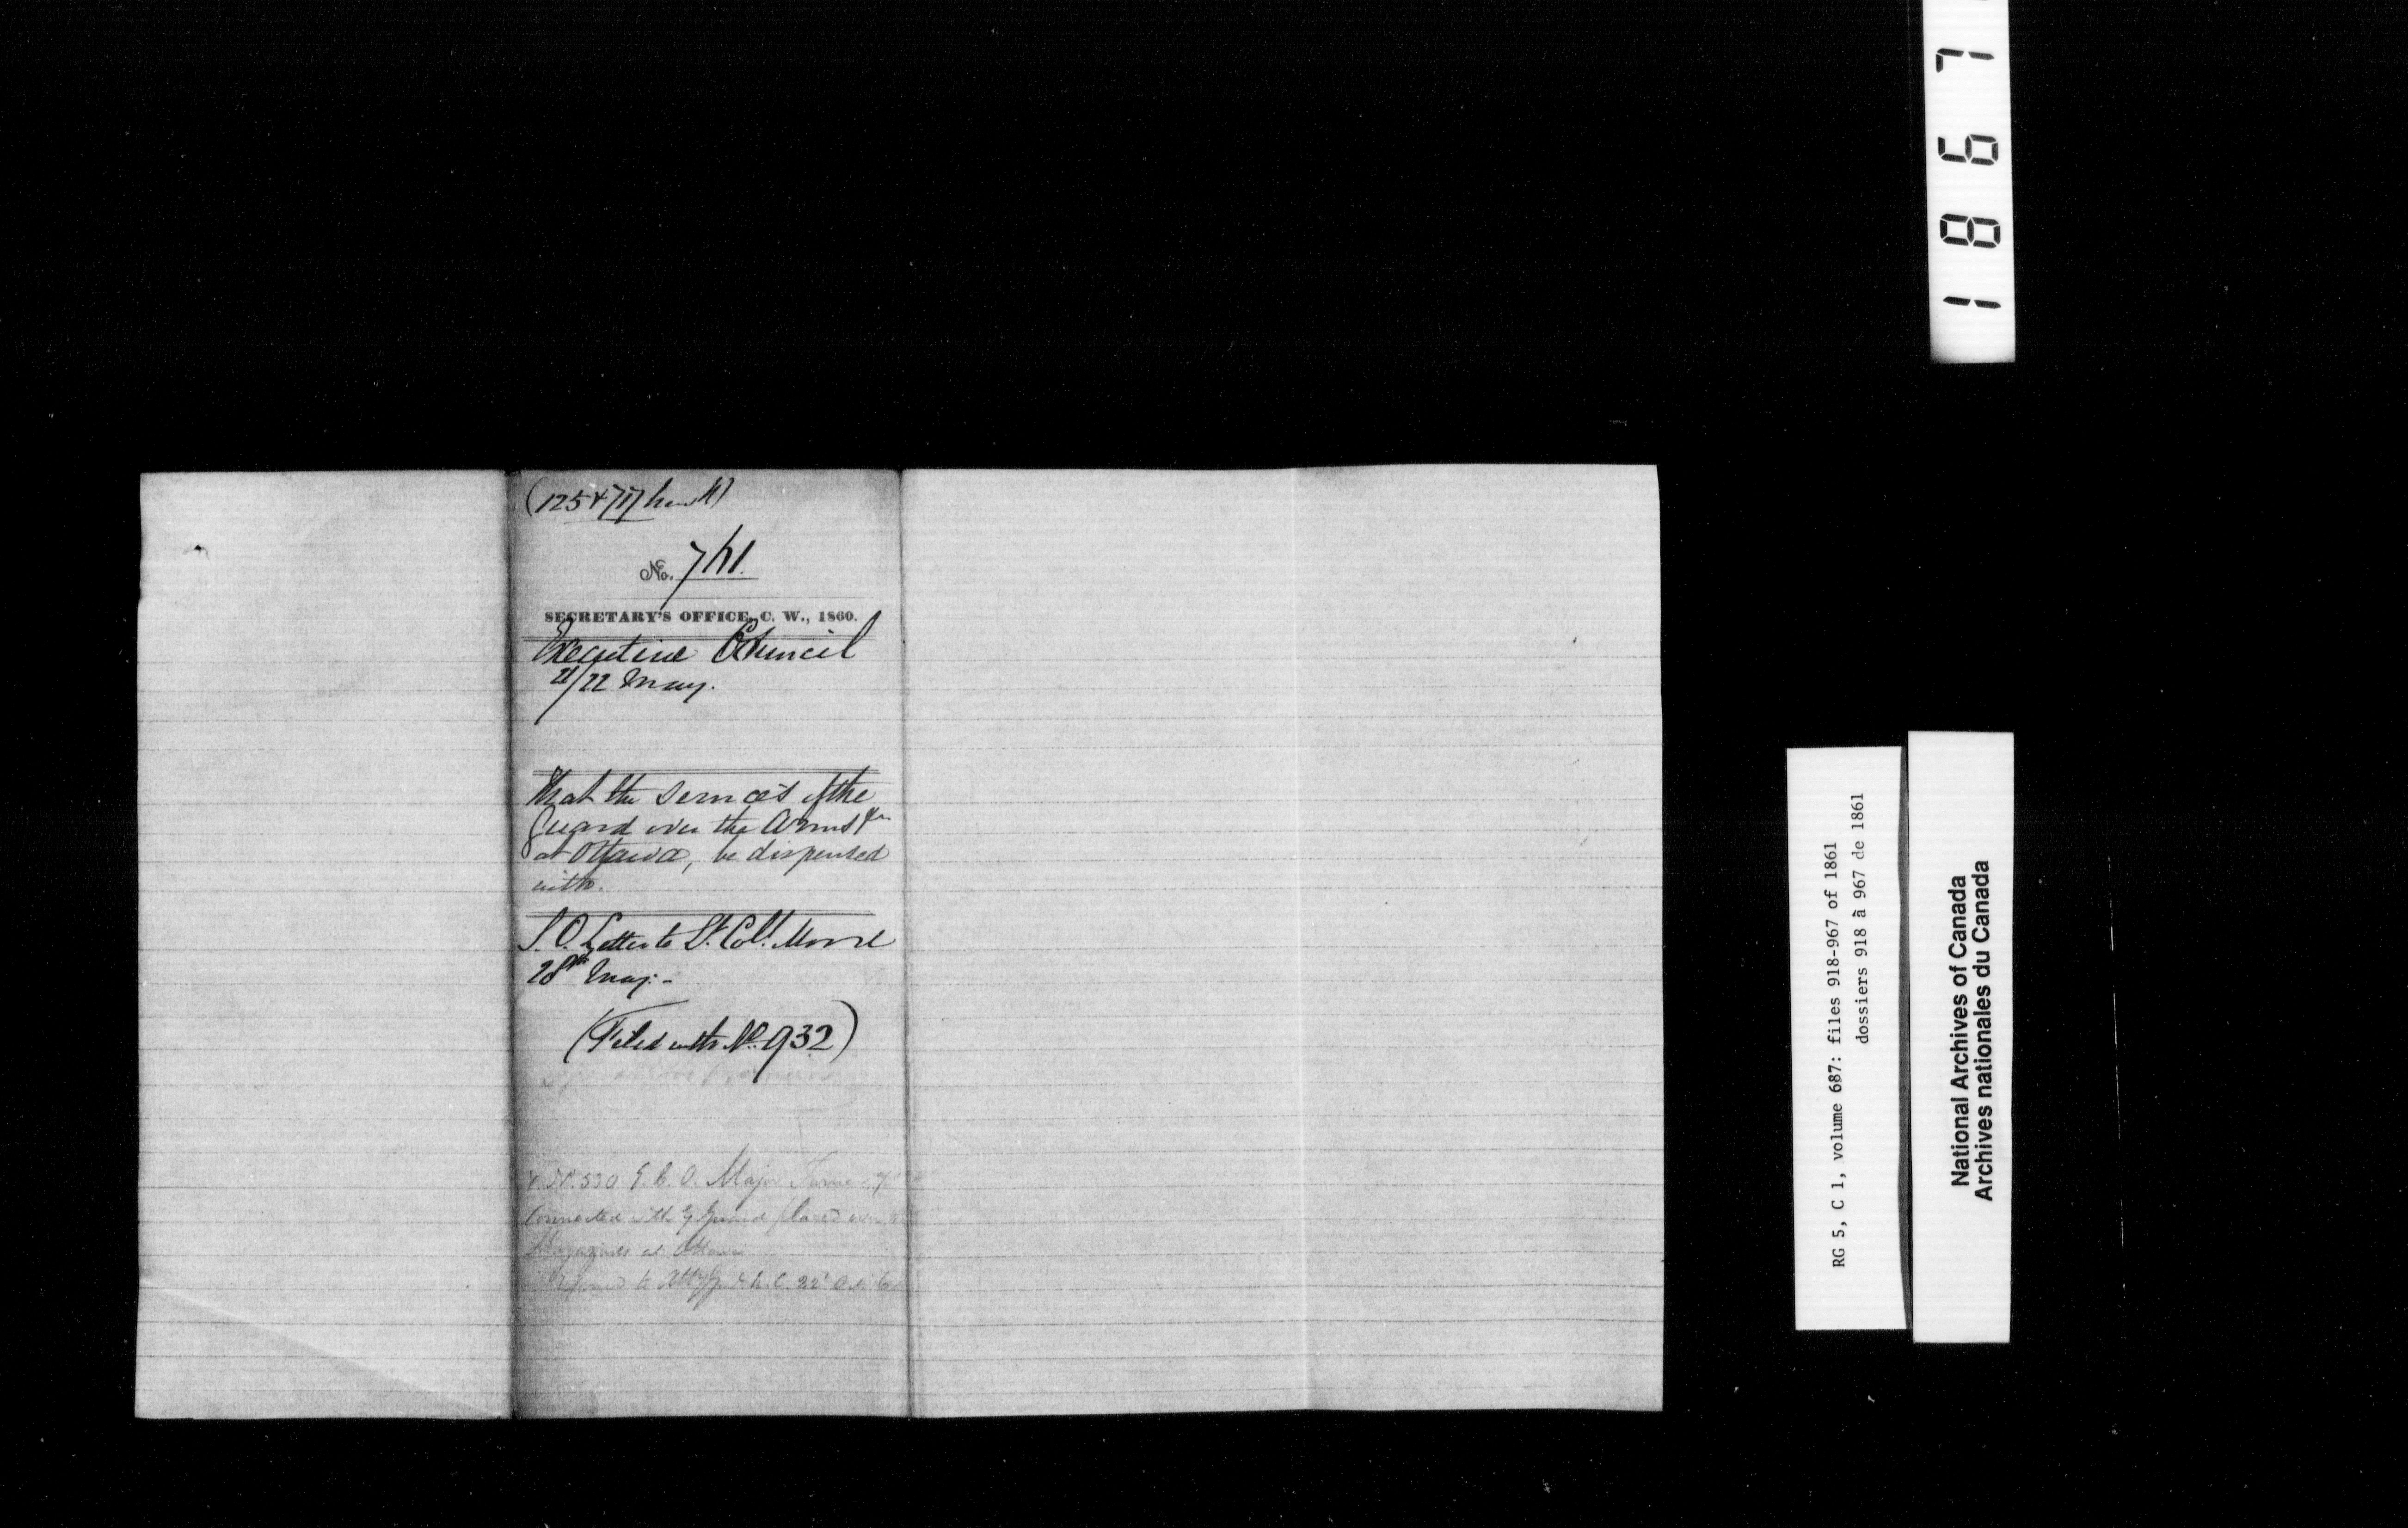 (125 & 717 herewith)
No. 741.
SECRETARY'S OFFICE, C. W., 1860.
Executive Council
21/22 May.
That the services of the
Guard over the Arms &c
at Ottawa, be dispensed
with.
S.O. Letter to Lt. Col.
28th May.-
(Filed with No. 932)
530 Major Turner
Connected with Guard placed over
Magazines at Ottawa
to Atty 22d Oct.
1867
RG 5, C 1, volume 687: files 918-967 of 1861
dossiers 918 à 967 de 1861
National Archives of Canada
Archives nationales du Canada